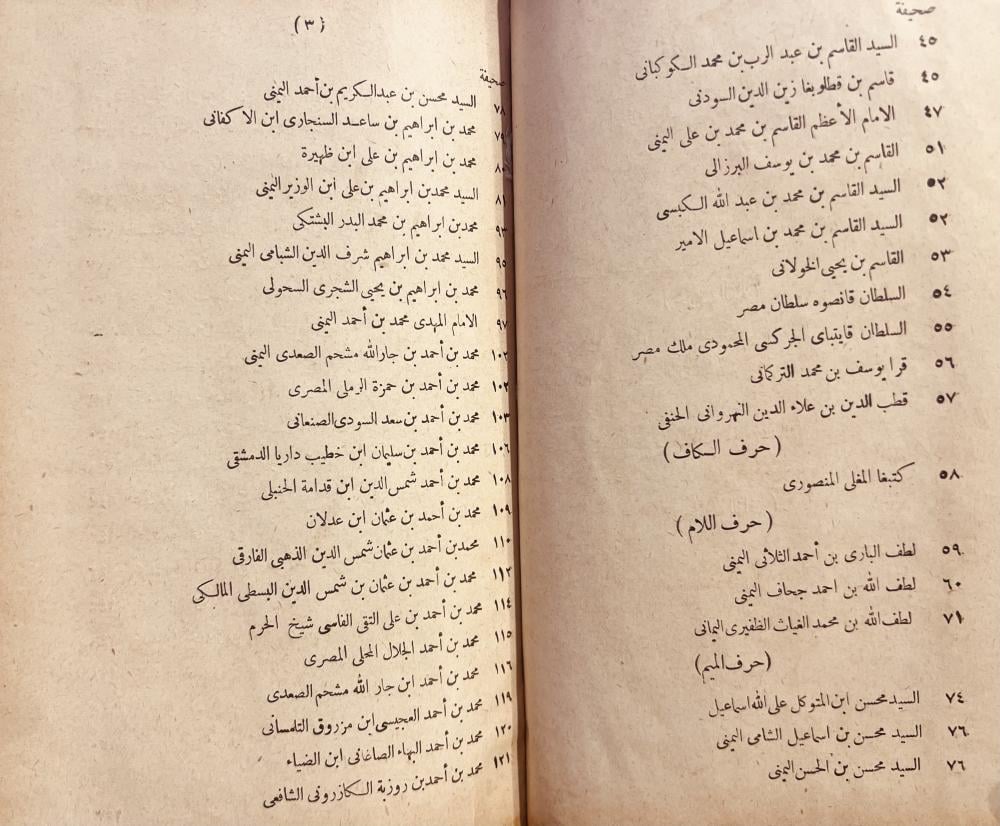 صحيفة
٤٥ السيد القاسم بن عبد الرب بن محمد الكوكبانى
٤٥ قاسم بن قطلوبغا زين الدين السودنى
٤٧ الامام الأعظم القاسم بن محمد بن على اليمنى
٥١ القاسم بن محمد بن يوسف البرزالى
٥٢ السيد القاسم بن محمد بن عبد الله الكبسى
٥٢ السيد القاسم بن محمد بن اسماعيل الامير
٥٣ القاسم بن يحيى الخولانى
٥٤ السلطان قانصوه سلطان مصر
٥٥ السلطان قايتباى الجركسى المحمودى ملك مصر
٥٦ قرا يوسف بن محمد التركمانى
٥٧ قطب الدين بن علاء الدين النهروانى الحنفى
( حرف الكاف )
٥٨ كتبغا المغلى المنصورى
( حرف اللام )
٥٩ لطف البارى بن أحمد الثلائى اليمنى
٦٠ لطف الله بن احمد جحاف اليمنى
٧١ لطف الله بن محمد الغياث الظفيرى اليمانى
( حرف الميم )
٧٤ السيد محسن ابن المتوكل على الله اسماعيل
٧٦ السيد محسن بن اسماعيل الشامى اليمنى
٧٦ السيد محسن بن الحسن اليمنى
( ٣ )
صحيفة
٧٨ السيد محسن بن عبد الكريم بن أحمد اليمنى
٧٩ محمد بن ابراهيم بن ساعد السنجارى ابن الاكفانى
٨٠ محمد بن ابراهيم بن على ابن ظهيرة
٨١ السيد محمد بن ابراهيم بن على ابن الوزير اليمنى
٩٣ محمد بن ابراهيم بن محمد البدر البشتكى
٩٥ السيد محمد بن ابراهيم شرف الدين الشبامى اليمنى
٩٦ محمد بن ابراهيم بن يحيى الشجرى السحولى
٩٧ الامام المهدى محمد بن أحمد اليمنى
١٠٢ محمد بن أحمد بن جار الله مشحم الصعدى اليمنى
١٠٢ محمد بن أحمد بن حمزة الرملى المصرى
١٠٣ محمد بن أحمد بن سعد السودى الصنعانى
١٠٦ محمد بن أحمد بن سليمان ابن خطيب داريا الدمشقى
١٠٨ محمد بن أحمد شمس الدين ابن قدامة الحنبلى
١٠٩ محمد بن أحمد بن عثمان ابن عدلان
١١٠ محمد بن أحمد بن عثمان شمس الدين الذهبى الفارقى
١١٢ محمد بن أحمد بن عثمان بن شمس الدين البسطى المالكى
١١٤ محمد بن أحمد بن على التقى الفاسى شيخ الحرم
١١٥ محمد بن أحمد الجلال المحلى المصرى
١١٦ محمد بن أحمد ابن جار الله مشحم الصعدى
١١٩ محمد بن أحمد العجيسى ابن مرزوق التلمسانى
١٢٠ محمد بن أحمد البهاء الصاغانى ابن الضياء
١٢١ محمد بن أحمد بن روزبة الكازرونى الشافعى